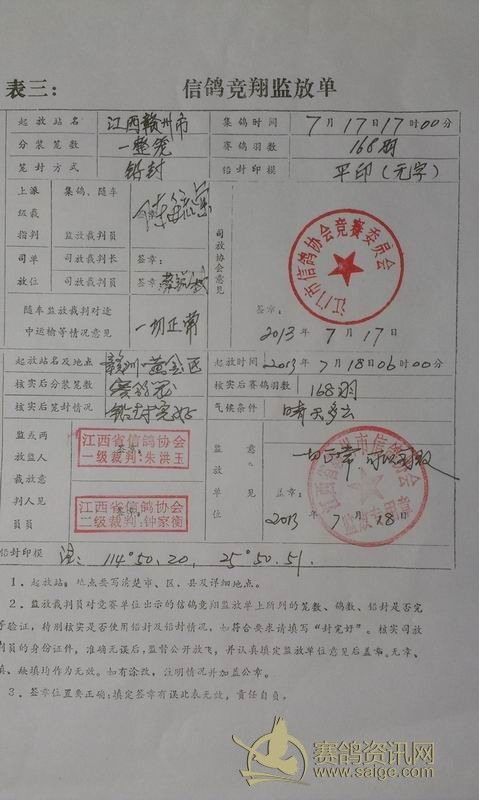 表三： 信鸽竞翔监放单
起放站名 江西赣州市 集鸽时间 7月17日17时00分
分装笼数 一整笼 赛鸽羽数 168羽
笼封方式 铅封 铅封印模 平印(无字)
上派 集鸽、随车
级裁
指判 监放裁判员
司单 司放裁判长 签章：
放位 司放裁判员 签章：
司放协会意见
江门市信鸽协会竞赛委员会
签章：
随车监放裁判对途
中运输等情况意见 一切正常
2013年7月17日
起放站名及地点 赣州·黄金区 起放时间 2013年7月18日06时00分
核实后分装笼数 核实后赛鸽羽数 168羽
核实后笼封情况 铅封完好 气候条件 晴天多云
监或两
放监人
裁放意
判人见
员员
江西省信鸽协会
一级裁判：朱洪玉
江西省信鸽协会
二级裁判：钟家衡
监放单位
意见
一切正常
盖章：
2013年7月18日
铅封印模 注： 114°50.20， 25°50.51.
1、起放站：地点要写清楚市、区、县及详细地点。
2、监放裁判员对竞赛单位出示的信鸽竞翔监放单上所列的笼数、鸽数、铅封是否完
等验证，特别核实是否使用铅封及铅封情况，如符合要求请填写“封完好”。核实司放
判员的身份证件，准确无误后，监督公开放飞，并认真填定监放单位意见后盖章。无章、
填、缺填均作为无效。如有涂改，注明情况并加盖公章。
3、签章位置要正确；填定签章有误此表无效，责任自负。
赛鸽资讯网
www.saigc.com